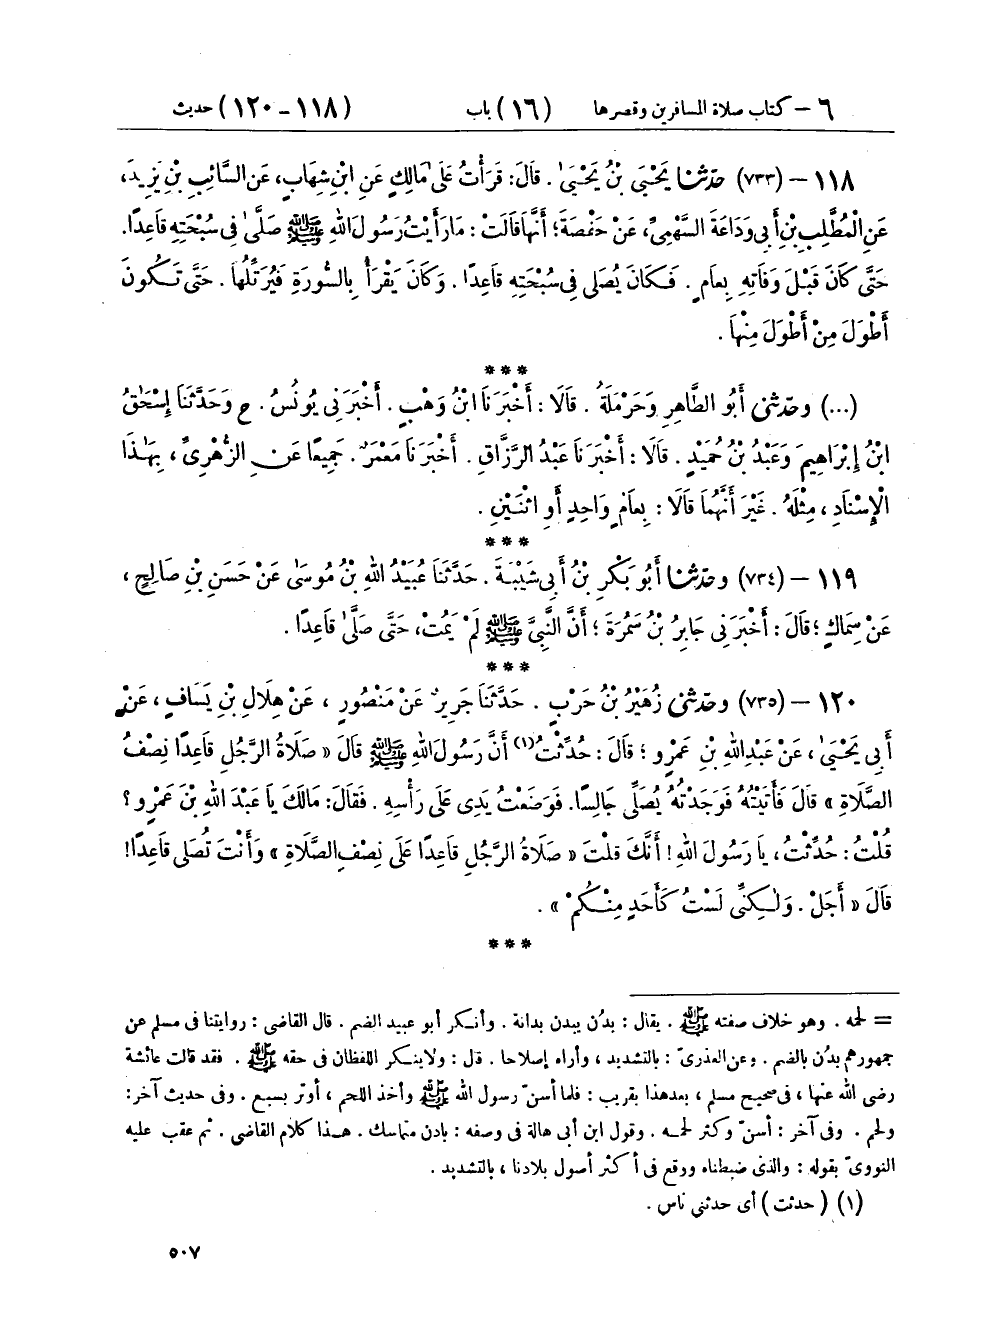 ٦ – كتاب صلاة المسافرين وقصرها (١٦) باب (١١٨ - ١٢٠) حديث
١١٨ – (٧٣٣) حَدَّثَنَا يَحْيَىٰ بْنُ يَحْيَىٰ . قَالَ: قَرَأْتُ عَلَى مَالِكٍ عَنِ ابْنِ شِهَابٍ، عَنِ السَّائِبِ بْنِ يَزِيدَ،
عَنِ الْمُطَّلِبِ بْنِ أَبِي وَدَاعَةَ السَّهْمِيِّ، عَنْ حَفْصَةَ؛ أَنَّهَا قَالَتْ: مَا رَأَيْتُ رَسُولَ اللهِ ﷺ صَلَّىٰ فِي سُبْحَتِهِ قَاعِدًا.
حَتَّى كَانَ قَبْلَ وَفَاتِهِ بِعَامٍ . فَكَانَ يُصَلِّي فِي سُبْحَتِهِ قَاعِدًا . وَكَانَ يَقْرَأُ بِالسُّورَةِ فَيُرَتِّلُهَا . حَتَّى تَكُونَ
أَطْوَلَ مِنْ أَطْوَلَ مِنْهَا .
* * *
(...) وحَدَّثَنِي أَبُو الطَّاهِرِ وَحَرْمَلَةُ . قَالَا : أَخْبَرَنَا ابْنُ وَهْبٍ . أَخْبَرَنِي يُونُسُ . ح وَحَدَّثَنَا إِسْحَٰقُ
ابْنُ إِبْرَاهِيمَ وَعَبْدُ بْنُ حُمَيْدٍ . قَالَا : أَخْبَرَنَا عَبْدُ الرَّزَّاقِ . أَخْبَرَنَا مَعْمَرٌ . جَمِيعًا عَنِ الزُّهْرِيِّ ، بِهَٰذَا
الْإِسْنَادِ ، مِثْلَهُ . غَيْرَ أَنَّهُمَا قَالَا : بِعَامٍ وَاحِدٍ أَوِ اثْنَيْنِ .
* * *
١١٩ – (٧٣٤) وحَدَّثَنَا أَبُو بَكْرِ بْنُ أَبِي شَيْبَةَ . حَدَّثَنَا عُبَيْدُ اللهِ بْنُ مُوسَىٰ عَنْ حَسَنِ بْنِ صَالِحٍ ،
عَنْ سِمَاكٍ ؛ قَالَ : أَخْبَرَنِي جَابِرُ بْنُ سَمُرَةَ ؛ أَنَّ النَّبِيَّ ﷺ لَمْ يَمُتْ، حَتَّى صَلَّىٰ قَاعِدًا .
* * *
١٢٠ – (٧٣٥) وحَدَّثَنِي زُهَيْرُ بْنُ حَرْبٍ . حَدَّثَنَا جَرِيرٌ عَنْ مَنْصُورٍ ، عَنْ هِلَالِ بْنِ يَسَافٍ ، عَنْ
أَبِي يَحْيَىٰ ، عَنْ عَبْدِ اللهِ بْنِ عَمْرٍو ؛ قَالَ : حُدِّثْتُ(١) أَنَّ رَسُولَ اللهِ ﷺ قَالَ « صَلَاةُ الرَّجُلِ قَاعِدًا نِصْفُ
الصَّلَاةِ » قَالَ فَأَتَيْتُهُ فَوَجَدْتُهُ يُصَلِّي جَالِسًا. فَوَضَعْتُ يَدِي عَلَى رَأْسِهِ . فَقَالَ: مَالَكَ يَا عَبْدَ اللهِ بْنَ عَمْرٍو ؟
قُلْتُ : حُدِّثْتُ، يَا رَسُولَ اللهِ! أَنَّكَ قُلْتَ « صَلَاةُ الرَّجُلِ قَاعِدًا عَلَى نِصْفِ الصَّلَاةِ » وَأَنْتَ تُصَلِّي قَاعِدًا!
قَالَ « أَجَلْ . وَلَٰكِنِّي لَسْتُ كَأَحَدٍ مِنْكُمْ » .
* * *
= لحمه . وهو خلاف صفته ﷺ . يقال : بدُن يبدن بدانة . وأنكر أبو عبيد الضم . قال القاضي : روايتنا في مسلم عن
جمهورهم بدُن بالضم . وعن العذريّ : بالتشديد ، وأراه إصلاحا . قال : ولا ينكر اللفظان في حقه ﷺ . فقد قالت عائشة
رضي الله عنها ، في صحيح مسلم ، بعد هذا بقريب : فلما أسنّ رسول الله ﷺ وأخذ اللحم ، أوتر بسبع . وفي حديث آخر :
ولحم . وفي آخر : أسنّ وكثر لحمه . وقول ابن أبي هالة في وصفه : بادن متماسك . هذا كلام القاضي . ثم عقب عليه
النوويّ بقوله : والذي ضبطناه ووقع في أكثر أصول بلادنا ، بالتشديد .
(١) ( حدثت ) أي حدثني ناس .
٥٠٧